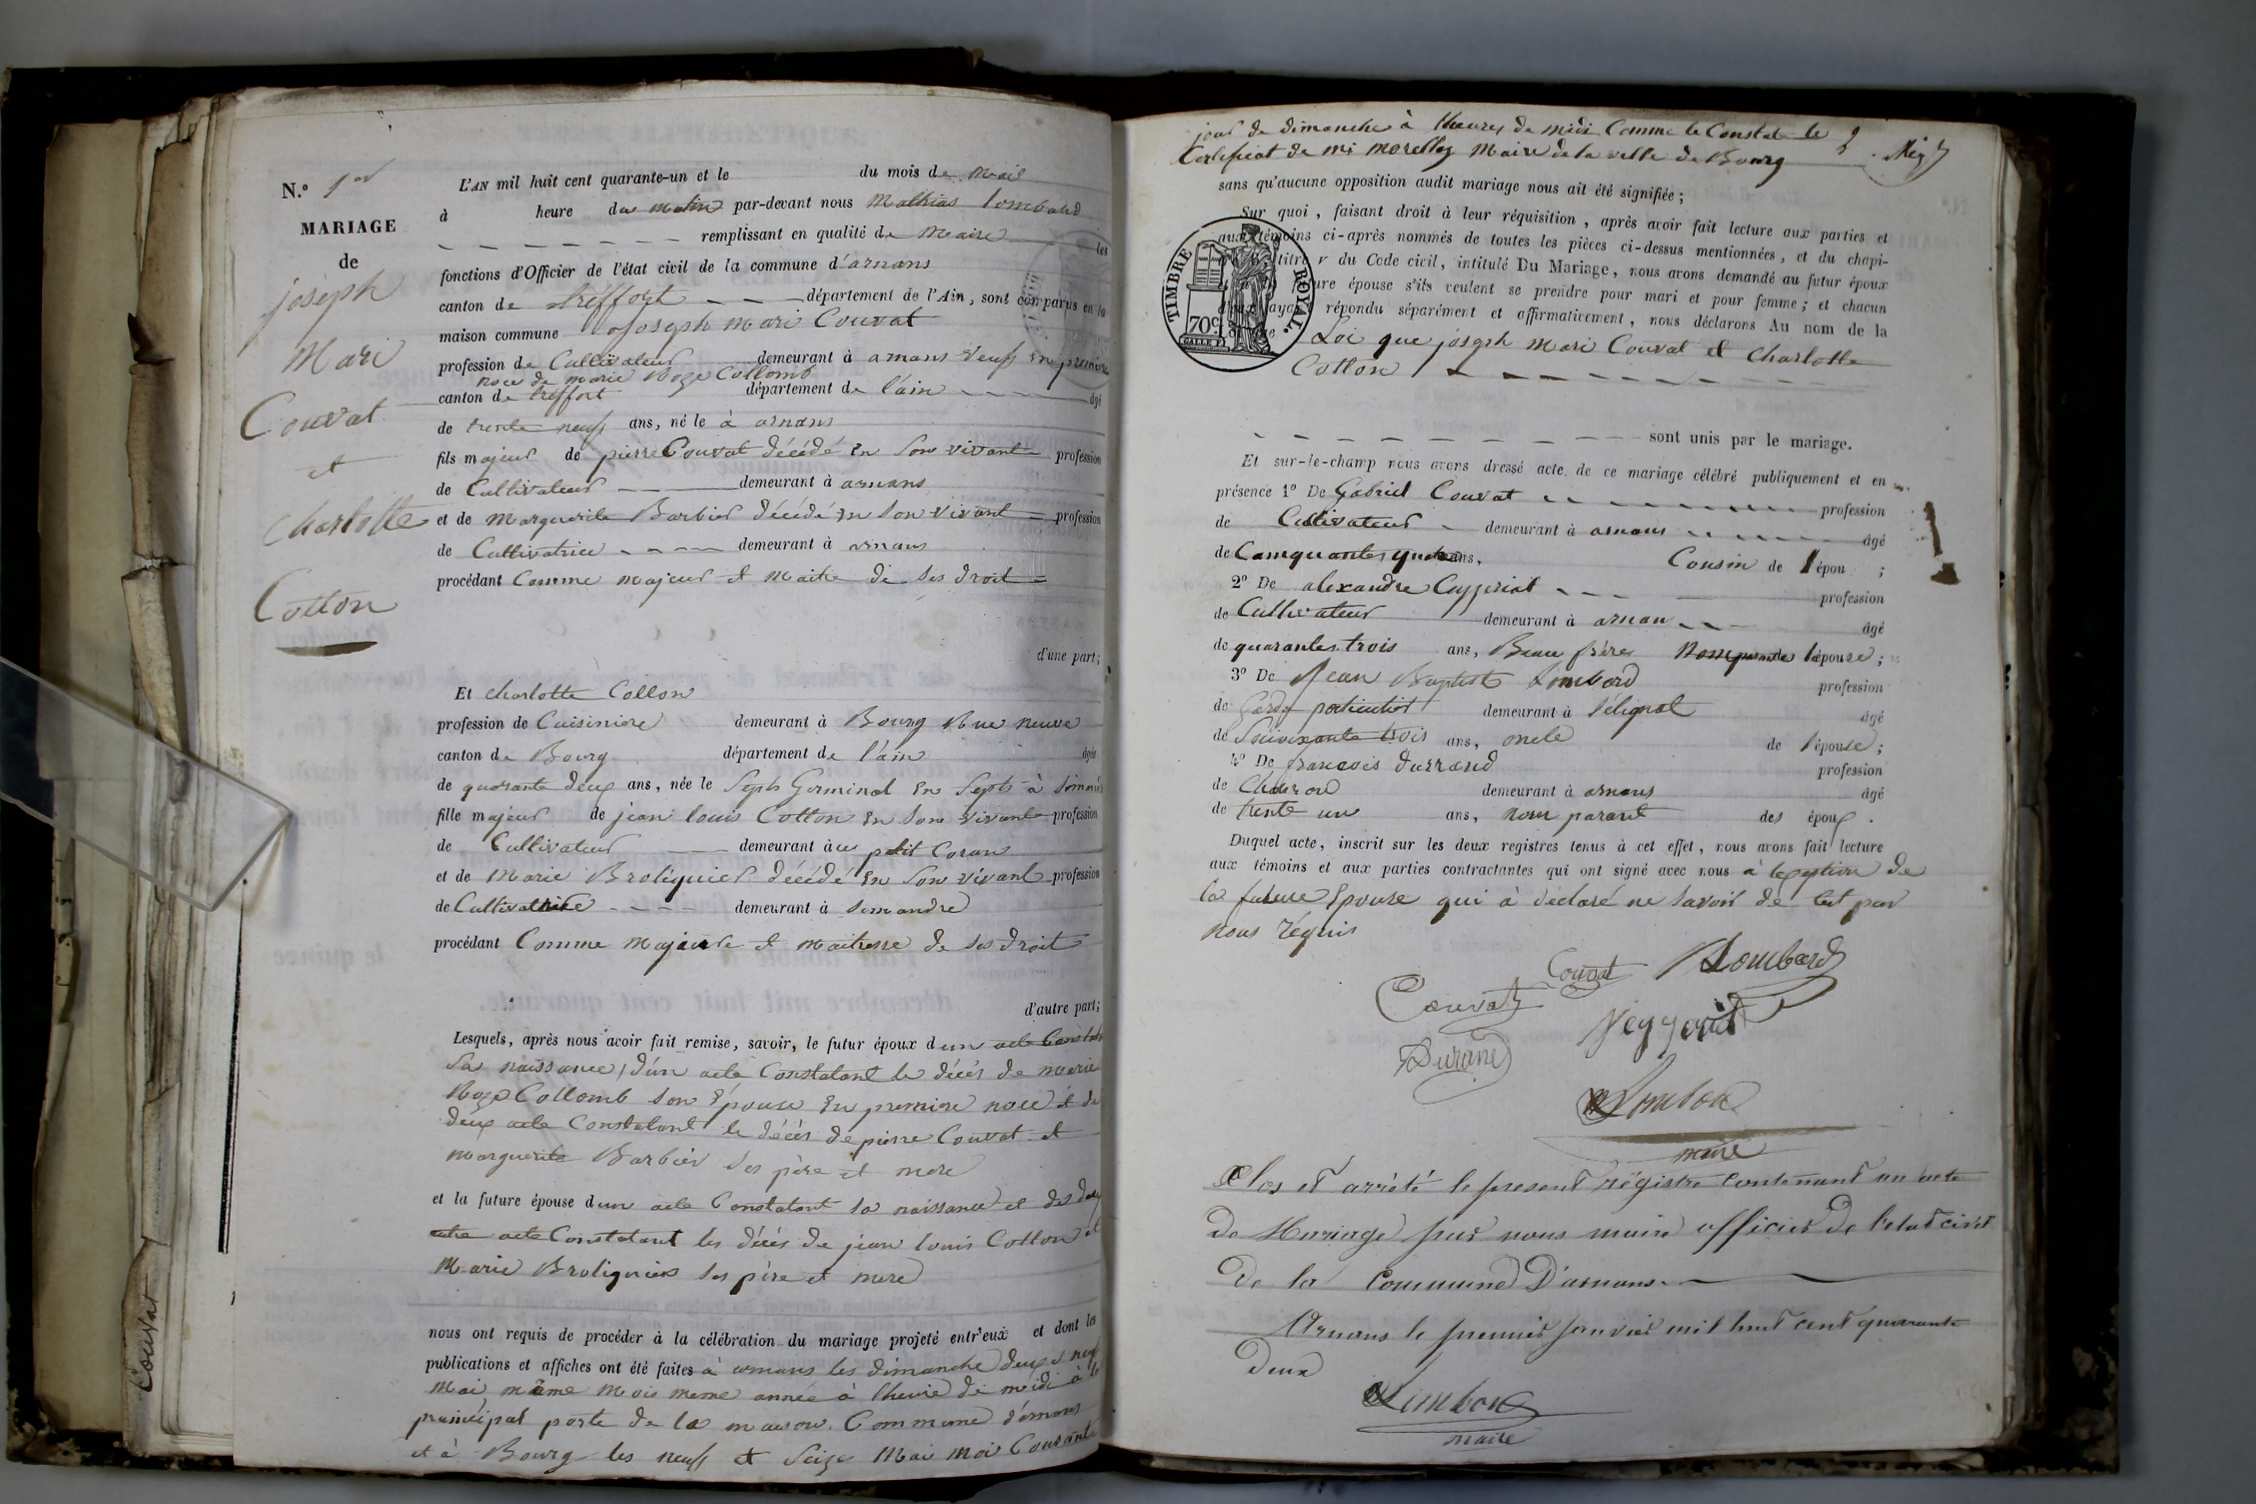 N.º 1er
MARIAGE
de
joseph
Mari
Couvat
et
charlotte
Cotton
L'AN mil huit cent quarante-un et le du mois de Mail
à heure du matin par-devant nous Mathias Lombard
remplissant en qualité de Maire les
fonctions d'Officier de l'état civil de la commune d'arnans
canton de tréffort département de l'Ain, sont comparus en la
maison commune joseph mari Couvat
profession de Cultivateur demeurant à arnans veuf en premiere
noce de marie Roze Collomb
canton de tréffort département de l'ain âgé
de trente neuf ans, né le à arnans
fils majeur de pierre Couvat décédé en son vivant profession
de Cultivateur demeurant à arnans
et de marguerite Barbier décédé en son vivant profession
de Cultivatrice demeurant à arnans
procédant Comme majeur et maitre de ses droit
d'une part;
Et charlotte Cotton
profession de Cuisiniere demeurant à Bourg Rue neuve
canton de Bourg département de l'ain âgée
de quarante deux ans, née le Septs Germinal en Septs à Simandre
fille majeur de jean louis Cotton en son vivant profession
de Cultivateur demeurant au petit Coran
et de Marie Broliquier décédé en son vivant profession
de Cultivatrice demeurant à simandre
procédant Comme majeure et maitresse de ses droit
d'autre part;
Lesquels, après nous avoir fait remise, savoir, le futur époux d'un acte Constatant
Sa naissance, d'un acte Constatant le décès de marie
Roze Collomb son Épouse en premiere noce et de
deux acte Constatant le décès de pierre Couvat et
marguerite Barbier ses père et mere
et la future épouse d'un acte Constatant sa naissance et des deux
acte Constatant les décès de jean louis Cotton et
Marie Broliquier ses père et mere
nous ont requis de procéder à la célébration du mariage projeté entr'eux et dont les
publications et affiches ont été faites à arnans les dimanche deux et neuf
Mai même Mois meme année à l'heure de midi à la
principal porte de la maison Commune d'arnans
et à Bourg les neuf et Seize Mai moi Courant
Couvat
jour de dimanche à l'heure de midi Comme le Constate le
Certificat de Mr Morellez Maire de la ville de Bourg
sans qu'aucune opposition audit mariage nous ait été signifiée;
Sur quoi, faisant droit à leur réquisition, après avoir fait lecture aux parties et
aux témoins ci-après nommés de toutes les pièces ci-dessus mentionnées, et du chapi-
titre V du Code civil, intitulé Du Mariage, nous avons demandé au futur époux
ure épouse s'ils veulent se prendre pour mari et pour femme; et chacun
répondu séparément et affirmativement, nous déclarons Au nom de la
TIMBRE ROYAL.
70c
Loi que joseph mari Couvat et charlotte
Cotton
sont unis par le mariage.
Et sur-le-champ nous avons dressé acte de ce mariage célébré publiquement et en
présence 1º De Gabriel Couvat profession
de Cultivateur demeurant à arnans âgé
de ans, Cousin de l'épou ;
2º De alexandre profession
de Cultivateur demeurant à arnan âgé
de quarantes trois ans, Beau frères l'épouse;
3º De Jean Baptist Lombard profession
de Garde particulier demeurant à Sélignat âgé
de Soixante trois ans, oncle de l'épouse;
4º De francois durrand profession
de Charron demeurant à arnans âgé
de trente un ans, nom parant des époux.
Duquel acte, inscrit sur les deux registres tenus à cet effet, nous avons fait lecture
aux témoins et aux parties contractantes qui ont signé avec nous à l'exeption de
la future Épouse qui à déclaré ne savoir de cet par
nous réquis
Couvat Lombard
Couvat
Durand
Lombard
maire
Clos et arrêté le present régistre contenant un acte
de Mariage par nous maire officier de l'etat civil
De la Commune D'arnans.
Arnans le premier janvier mil huit cent quarante
Deux
Lombard
maire